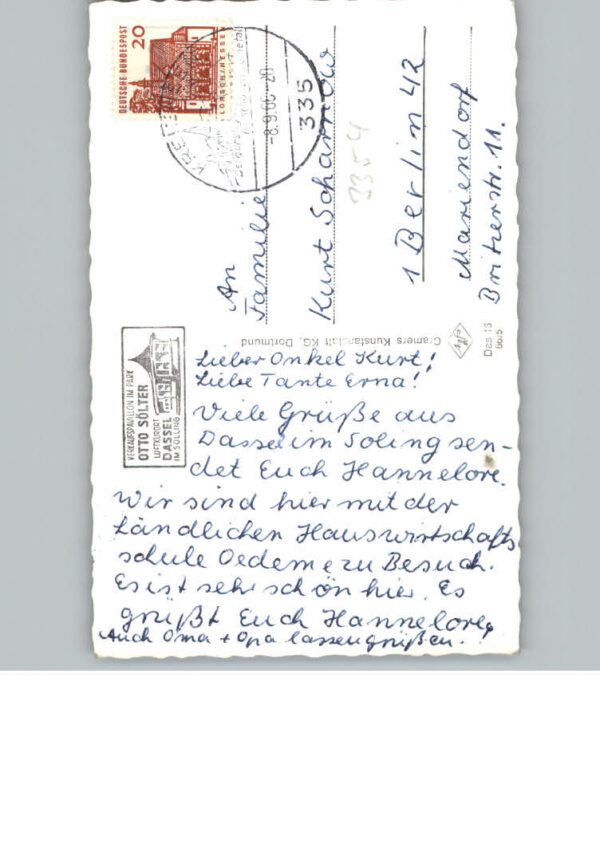 DEUTSCHE BUNDESPOST
20
LORSCH/HESSEN
-8.9.66-20
335
An
Familie
Kurt Scharnow
1 Berlin 42
Mariendorf
Britzerstr. 11.
3354
Cramers Kunstanstalt KG, Dortmund
Das 13
66/5
VERKAUFSPAVILLON IM PARK
OTTO SÖLTER
LUFTKURORT
DASSEL
IM SOLLING
Lieber Onkel Kurt!
Liebe Tante Erna!
Viele Grüße aus
Dassel im Soling sen-
det Euch Hannelore.
Wir sind hier mit der
Ländlichen Hauswirtschafts
schule Oedeme zu Besuch.
Es ist sehr schön hier. Es
grüßt Euch Hannelore,
Auch Oma + Opa lassen grüßen.